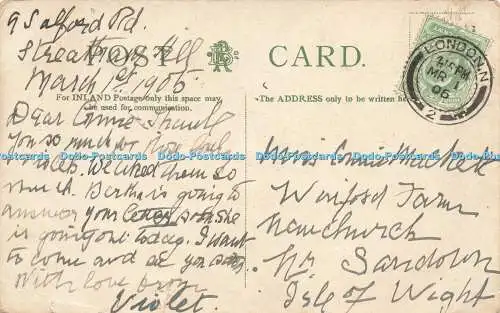 9 Salford Rd.
Streatham Hill
March 1st 1906
POST CARD.
For INLAND Postage only this space may be used for communication.
The ADDRESS only to be written here
Dear Connie Thank
you so much for
We liked them so
much. Bertha is going to
answer your letter soon she
is going out today. I want
to come and see you
With love from
Violet.
LONDON. N
2.15 PM
MR 1
06
2
Miss Connie
Farm
Newchurch
Nr. Sandown
Isle of Wight
Dodo-Postcards Dodo-Postcards Dodo-Postcards Dodo-Postcards Dodo-Postcards Dodo-Postcards